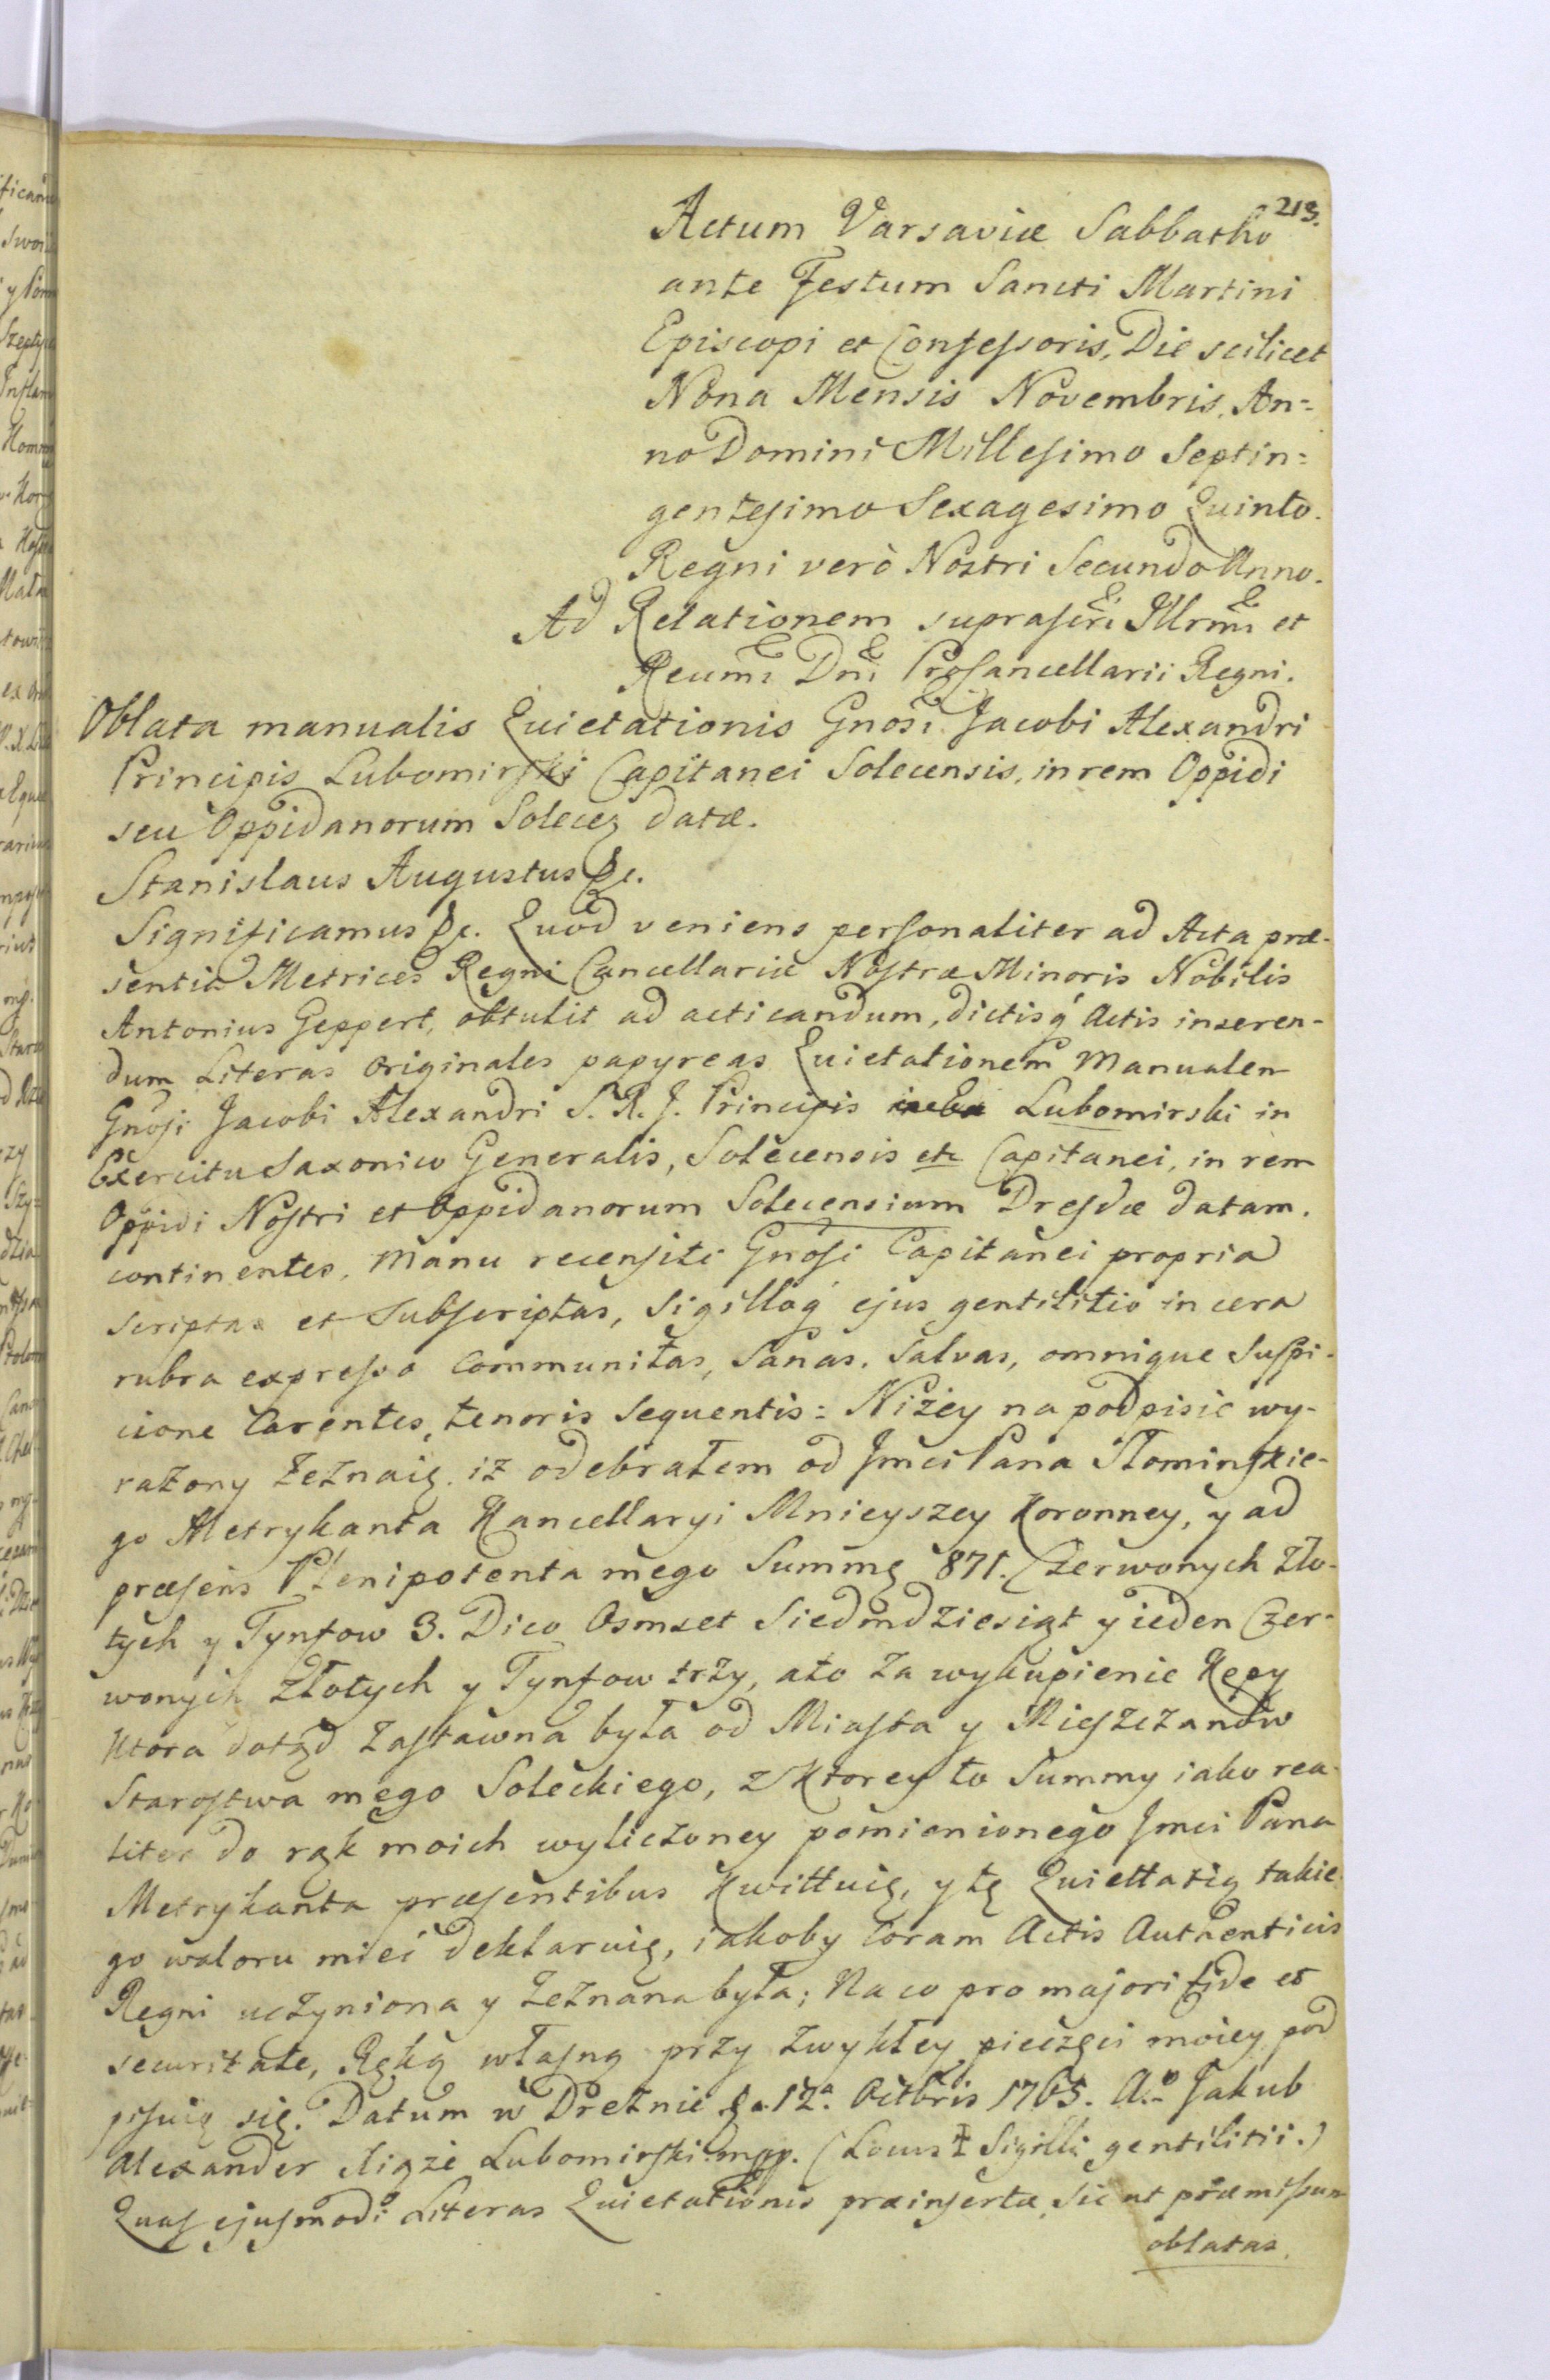 213.
Actum Varsaviæ Sabbatho
ante Festum Sancti Martini
Episcopi et Confeſsoris, Die scilicet
Nona Mensis Novembris, An-
no Domini Milleſimo Septin-
genteſimo Sexagesimo Quinto.
Regni verò Nostri Secundo Anno.
Ad Relationem supraſcri Illrmi et
Reumi Dni ProCancellarii Regni.
Oblata manualis Quietationis Gnosi Jacobi Alexandri
Principis Lubomirſki Capitanei Solecensis, in rem Oppidi
seu Oppidanorum Solecz datæ.
Stanislaus Augustus &c.
Significamus &c. Quod veniens perſonaliter ad Acta præ-
sentia Metrices Regni Cancellariæ Noſtræ Minoris Nobilis
Antonius Geppert, obtulit ad acticandum, dictisq́ Actis inseren-
dum Literas originales papyreas Quietationem Manualem
Gnoſi Jacobi Alexandri S. R. J. Principis Lubomirski in
Exercitu Saxonico Generalis, Solecensis etc Capitanei, in rem
Oppidi Noſtri et Oppidanorum Solecensium Dreſdæ datam.
continentes, Manu recenſiti Gnoſi Capitanei propria
scriptas et Subſcriptas, Sigilloq́ ejus gentilitio in cera
rubra expreſso communitas, Sanas, Salvas, omnique Suſpi-
cione Carentes, tenoris Sequentis: Niżey na podpisie wy-
rażony zeznaię, iż odebrałem od Jmci Pana Słominſkie-
go Metrykanta Kancellaryi Mnieyszey Koronney, y ad
præſens Plenipotenta mego Summę 871. Czerwonych Zło-
tych y Tynfow 3. Dico Osmset Siedmdziesiąt y ieden Czer-
wonych Złotych y Tynfow trzy, a to za wykupienie Kępy
Ktora dotąd Zaſtawna była od Miaſta y Mieſzczanów
Staroſtwa mego Soleckiego, z Ktorey to Summy iako rea-
liter do rąk moich wyliczoney pomienionego Jmci Pana
Metrykanta præſentibus Kwittuię, y tę Quiettatią takie-
go waloru mieć deklaruię, iakoby Coram Actis Authenticis
Regni uczyniona y zeznana była; Na co pro majori fide et
securitate, Ręką właſną przy zwykłey pieczęci moiey pod
piſuię się. Datum w Dreznie d. 12ª. Octbris 1765. A.º Jakub
Alexander Xiąże Lubomirſki mpp. (Locus ‡ Sigilli gentilitii.)
Quaſ ejuſmodi Literas Quietationis præinſertæ, sic ut præmiſsum
oblatas